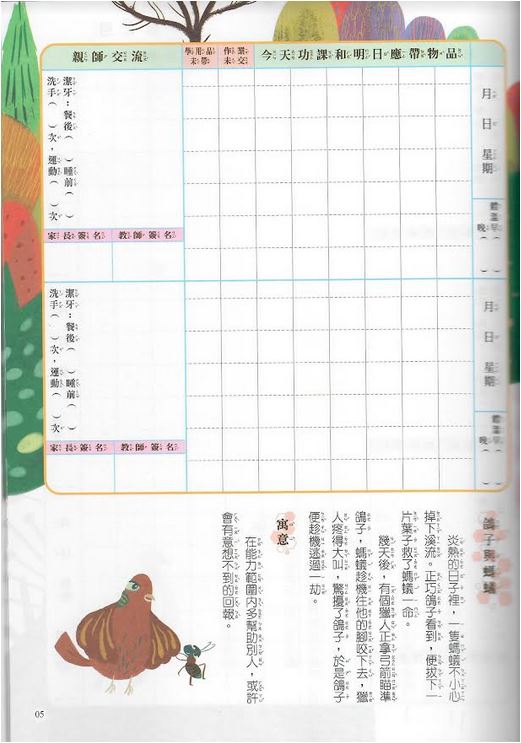 親師交流
學用品
未帶
作業
未交
今天功課和明日應帶物品
月 日 星期
體溫 早( )
晚( )
潔牙:餐後( )睡前( )
洗手( )次,運動( )次
家長簽名
教師簽名
月 日 星期
體溫 早( )
晚( )
潔牙:餐後( )睡前( )
洗手( )次,運動( )次
家長簽名
教師簽名
鴿子與螞蟻
炎熱的日子裡,一隻螞蟻不小心
掉下溪流。正巧鴿子看到,便拔下一
片葉子救了螞蟻一命。
幾天後,有個獵人正拿弓箭瞄準
鴿子,螞蟻趁機往他的腳咬下去,獵
人疼得大叫,驚擾了鴿子,於是鴿子
便趁機逃過一劫。
寓意
在能力範圍內多幫助別人,或許
會有意想不到的回報。
05